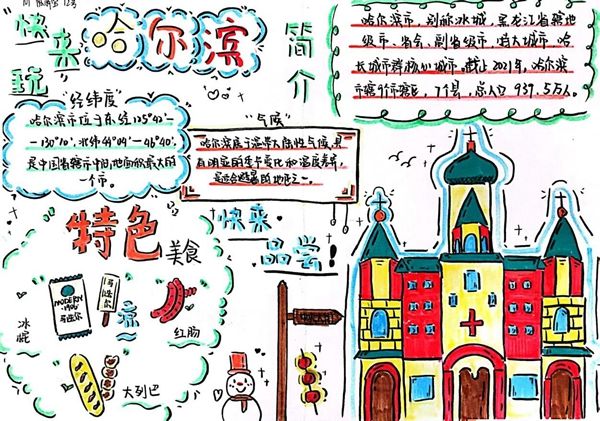 快来
玩
哈尔滨
简
介
哈尔滨市，别称冰城，黑龙江省辖地
级市、省会、副省级市、特大城市、哈
长城市群核心城市，截止2021年，哈尔滨
市辖9个市辖区，7个县，总人口937.5万人。
"经纬度"
哈尔滨市位于东经125°42′-
-130°10′、北纬44°04′-46°40′，
是中国省辖市中陆地面积最大的
一个市。
"气候"
哈尔滨属于温带大陆性气候，具
有明显的季节变化和温度差异，
是适合避暑的地区之一。
特色
美食
快来
品尝！
MODERN
·1906·
马迭尔
马迭尔
冰棍
红肠
大列巴